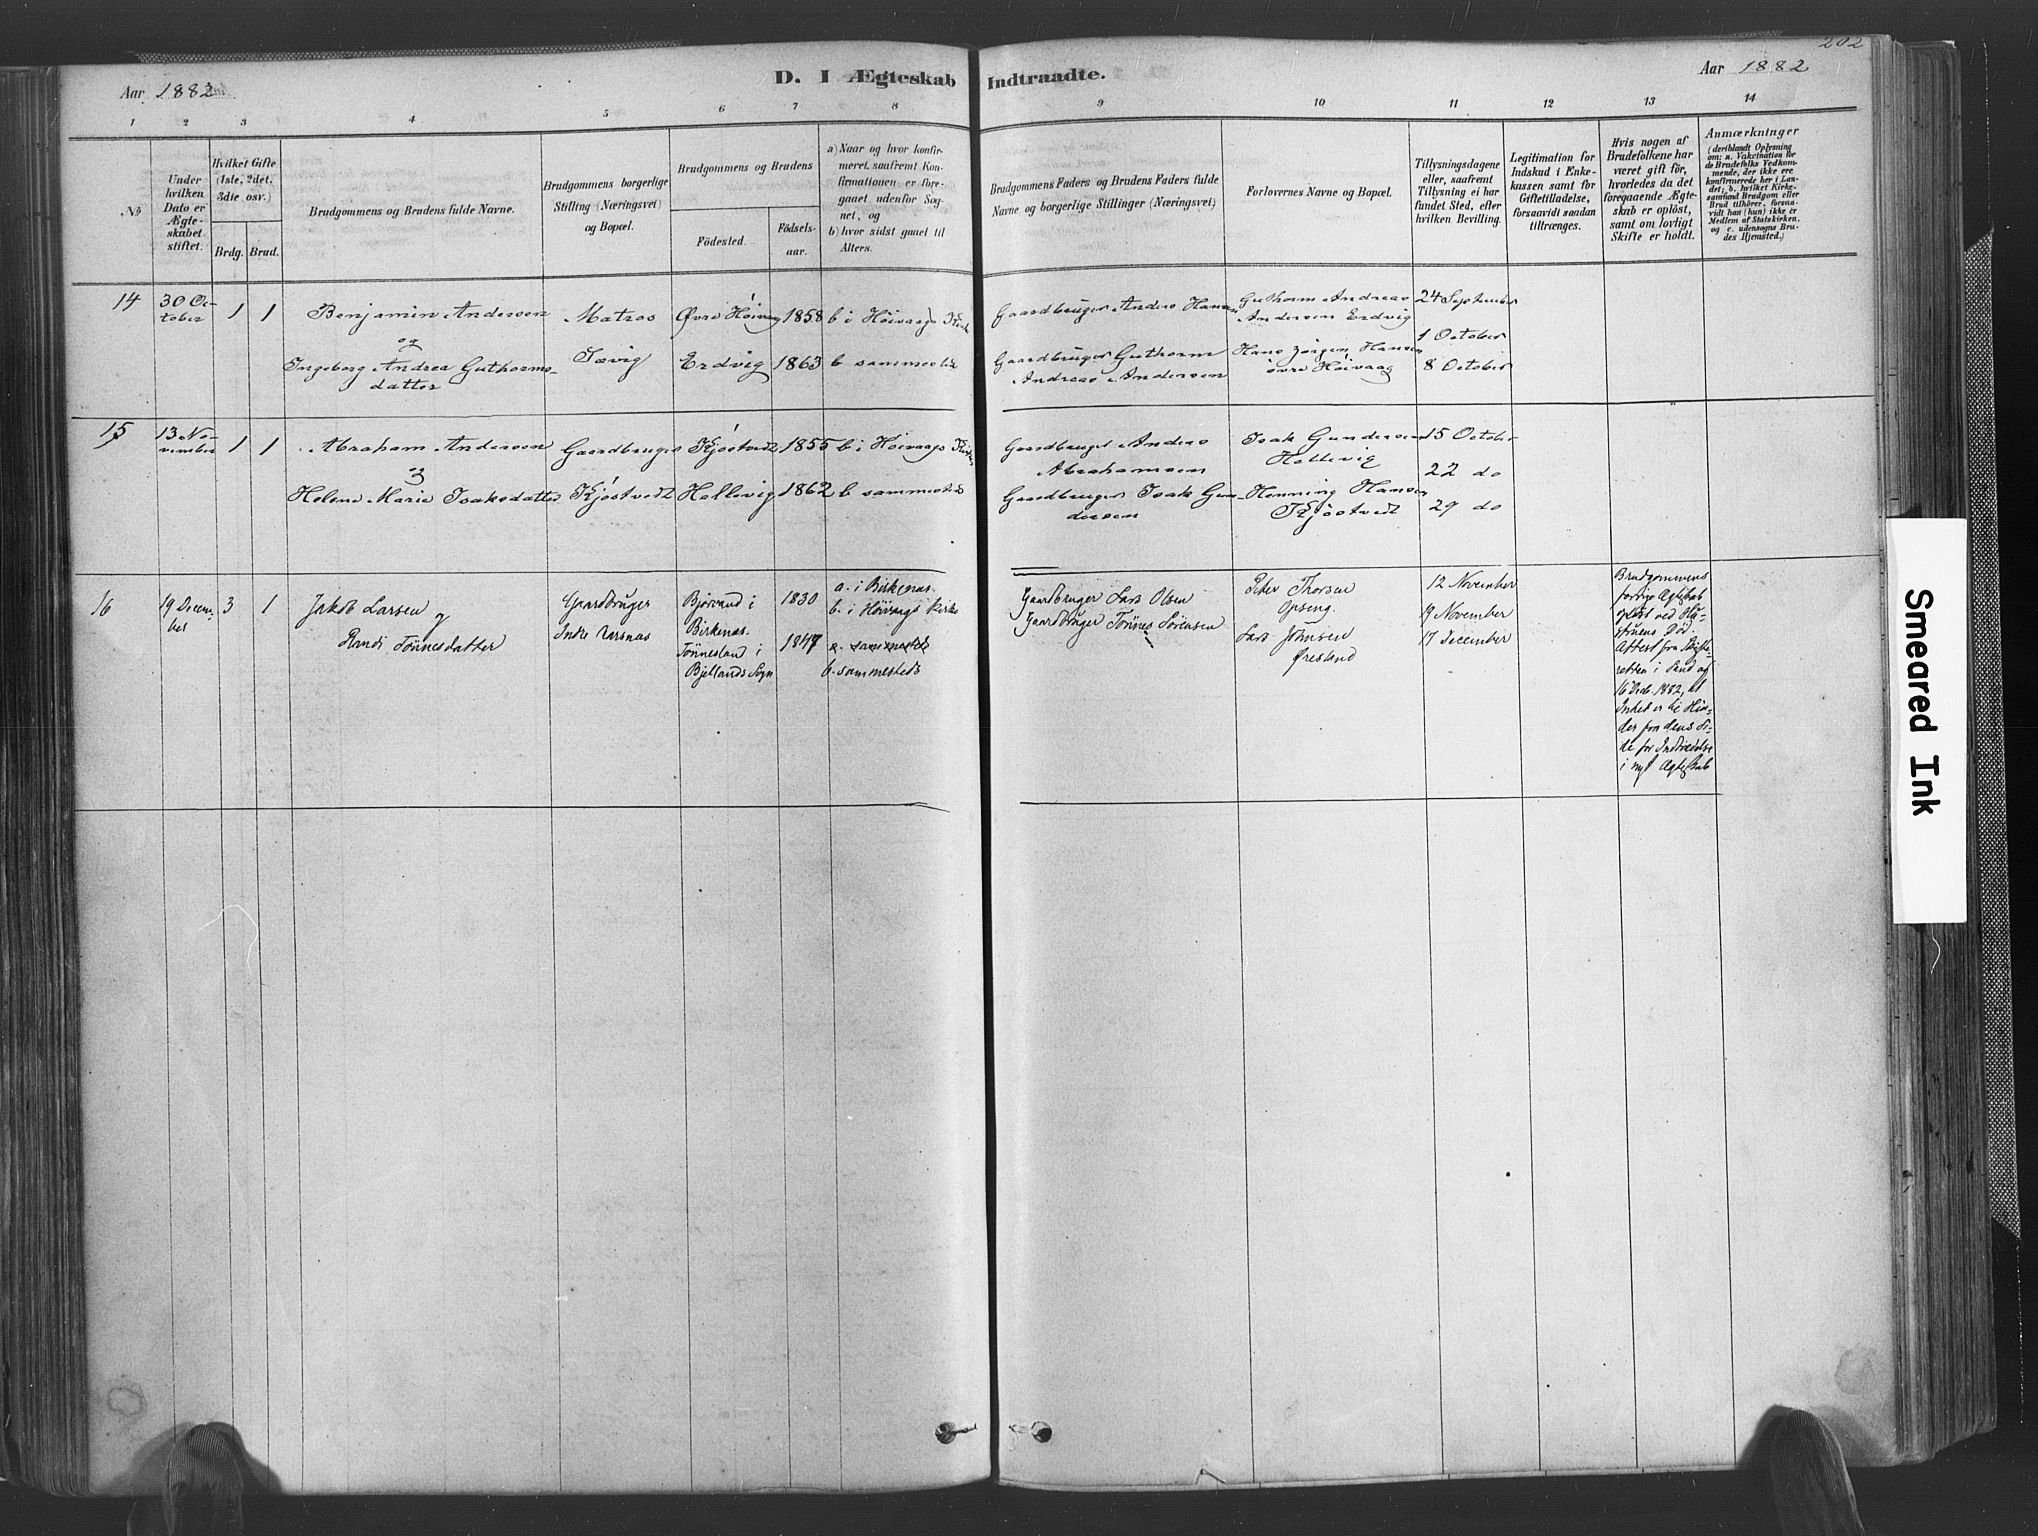 202
Aar 1882
D. I Ægteskab Indtraadte.
Aar 1882
1 2 3 4 5 6 7 8 9 10 11 12 13 14
No
Under hvilken Dato er Ægte-skabet stiftet.
Hvilket Gifte (1ste, 2det, 3die osv.)
Brdg. Brud.
Brudgommens og Brudens fulde Navne.
Brudgommens borgerlige Stilling (Næringsvei) og Bopæl.
Brudgommens og Brudens
Fødested.
Fødsels-aar.
a) Naar og hvor konfir-meret, saafremt Kon-firmationen er fore-gaaet udenfor Sog-net, og
b) hvor sidst gaaet til Alters.
Brudgommens Faders og Brudens Faders fulde Navne og borgerlige Stillinger (Næringsvei)
Forlovernes Navne og Bopæl.
Tillysningsdagene eller, saafremt Tillysning ei har fundet Sted, efter hvilken Bevilling.
Legitimation for Indskud i Enke-kassen samt for Giftetilladelse, forsaavidt saadan tiltrænges.
Hvis nogen af Brudefolkene har været gift før, hvorledes da det foregaaende Ægte-skab er opløst, samt om lovligt Skifte er holdt.
Anmærkninger
(deriblandt Oplysning om: a. Vakcination for de Brudefolks Vedkom-mende, der ikke ere konfirmerede her i Lan-det; b. hvilket Kirke-samfund Brudgom eller Brud tilhører, forsaa-vidt han (hun) ikke er Medlem af Statskirken, og c. udensogns Bru-des Hjemsted.)
14
30 Oc-
tober
1 1
Benjamin Andersen
og
Ingeborg Andrea Guthorms-
datter
Matros
Tævig
Øvre Høivaag
Erdvig
1858
1863
b i Høivaags Kirke
b sammested
Gaardbruger Anders Hansen
Gaardbruger Guthorm
Andreas Andersen
Guthorm Andreas
Andersen Erdvig
Hans Jørgen Hansen
øvre Høivaag
24 September
1 October
8 October
15
13 No-
vember
1 1
Abraham Andersen
og
Helene Marie Isaksdatter
Gaardbruger
Kjøstvedt
Kjøstvedt
Hellevig
1855
1862
b i Høivaags Kirke
b sammesteds
Gaardbruger Anders
Abrahamsen
Gaardbruger Isak Gun-
dersen
Isak Gundersen
Hellevig
Henning Hansen
Kjøstvedt
15 October
22 do
29 do
16
19 Decem-
ber
3 1
Jakob Larsen og
Randi Tönnesdatter
Gaardbruger
Indre Aarsnæs
Bjorvand i
Birkenæs.
Tönnesland i
Bjellands Sogn
1830
1847
a. i Birkenæs.
b. i Høivaags Kirke
a. sammesteds
b. sammesteds
Gaardbruger Lars Olsen
Gaardbruger Tönnes Sørensen
Peder Thorsen
Opseng.
Lars Johnsen
Øresland
12 November
19 November
17 December
Brudgommens
forrige Ægteskab
opløst ved Hu-
struens Død.
Attest fra Skifte-
retten i Sand af
16 Decb. 1882, at
Intet er til Hin-
der fra dens Si-
de for Indtrædelse
i nyt Ægteskab
Smeared Ink